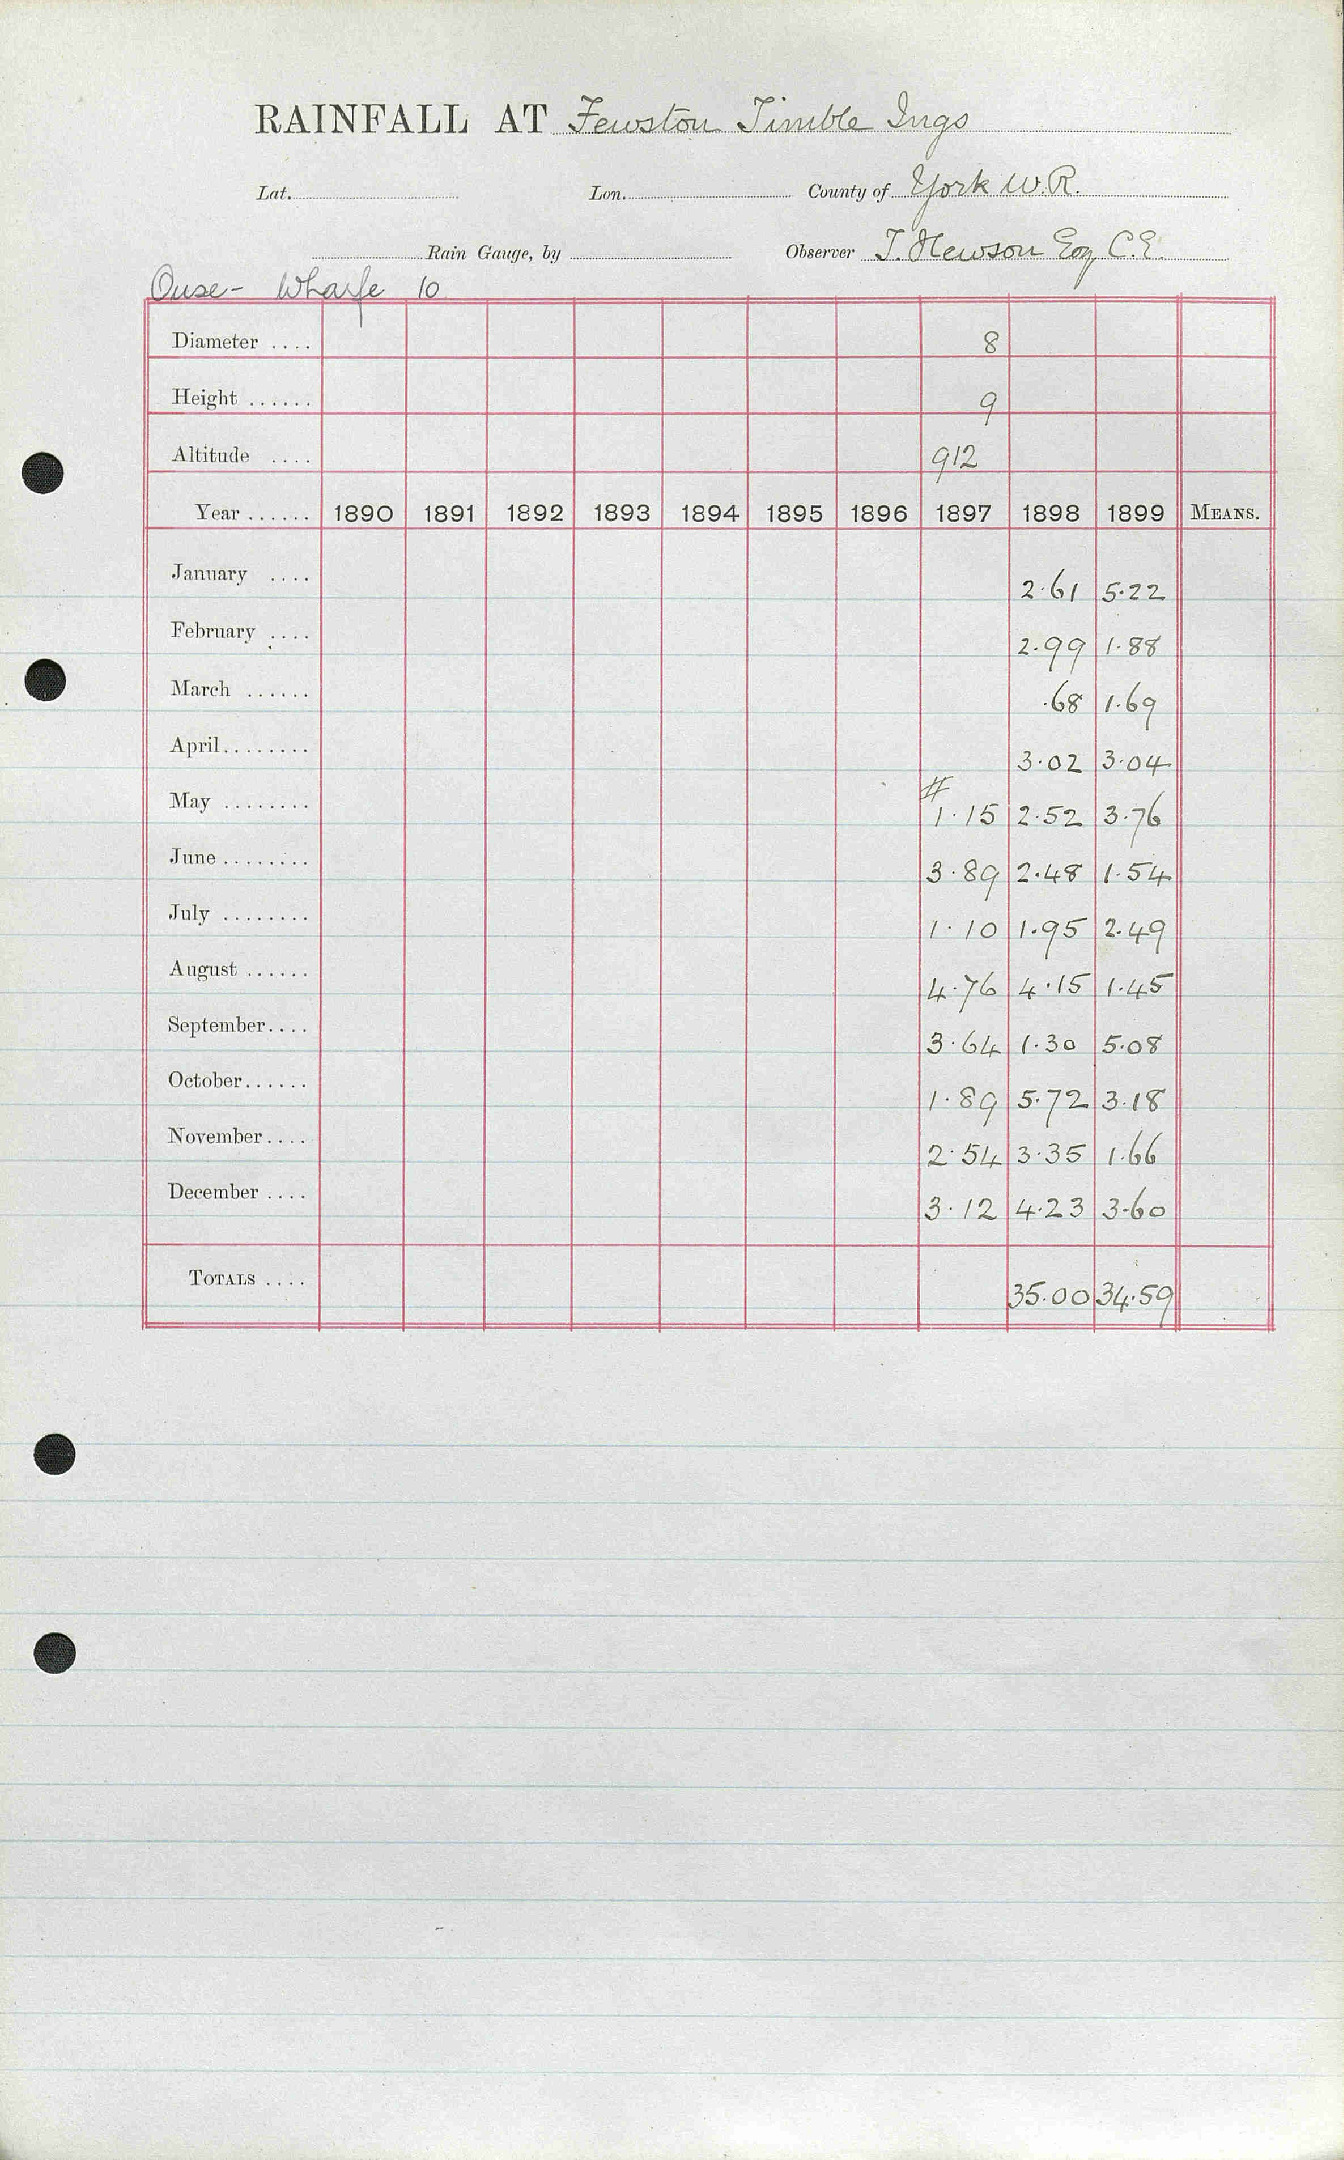 RAINFALL AT Fewston Timble Ings
Lat. Lon. County of York W.R.
Rain Gauge, by Observer T. Hewson Esq C.E.
Ouse - Wharfe 10
Diameter .... 8
Height ...... 9
Altitude .... 912
Year ...... 1890 1891 1892 1893 1894 1895 1896 1897 1898 1899 MEANS.
January .... 2.61 5.22
February .... 2.99 1.88
March ...... .68 1.69
April ........ 3.02 3.04
#
May ........ 1.15 2.52 3.76
June ........ 3.89 2.48 1.54
July ........ 1.10 1.95 2.49
August ...... 4.76 4.15 1.45
September.... 3.64 1.30 5.08
October...... 1.89 5.72 3.18
November.... 2.54 3.35 1.66
December .... 3.12 4.23 3.60
TOTALS .... 35.00 34.59